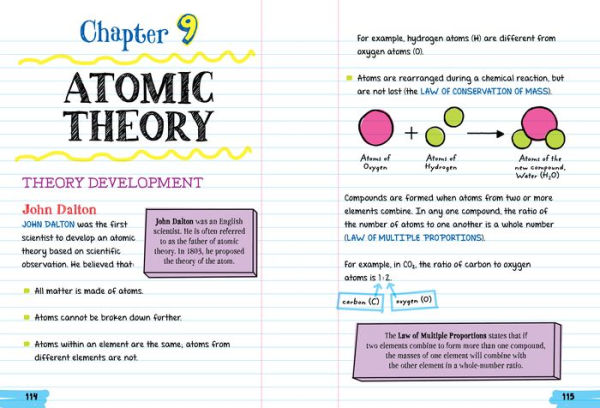 Chapter 9
ATOMIC
THEORY
THEORY DEVELOPMENT
John Dalton
JOHN DALTON was the first
scientist to develop an atomic
theory based on scientific
observation. He believed that:
John Dalton was an English
scientist. He is often referred
to as the father of atomic
theory. In 1803, he proposed
the theory of the atom.
All matter is made of atoms.
Atoms cannot be broken down further.
Atoms within an element are the same; atoms from
different elements are not.
114
For example, hydrogen atoms (H) are different from
oxygen atoms (O).
Atoms are rearranged during a chemical reaction, but
are not lost (the LAW OF CONSERVATION OF MASS).
+
Atoms of
Oxygen
Atoms of
Hydrogen
Atoms of the
new compound,
Water (H₂O)
Compounds are formed when atoms from two or more
elements combine. In any one compound, the ratio of
the number of atoms to one another is a whole number
(LAW OF MULTIPLE PROPORTIONS).
For example, in CO₂, the ratio of carbon to oxygen
atoms is 1:2.
carbon (C)
oxygen (O)
The Law of Multiple Proportions states that if
two elements combine to form more than one compound,
the masses of one element will combine with
the other element in a whole-number ratio.
115